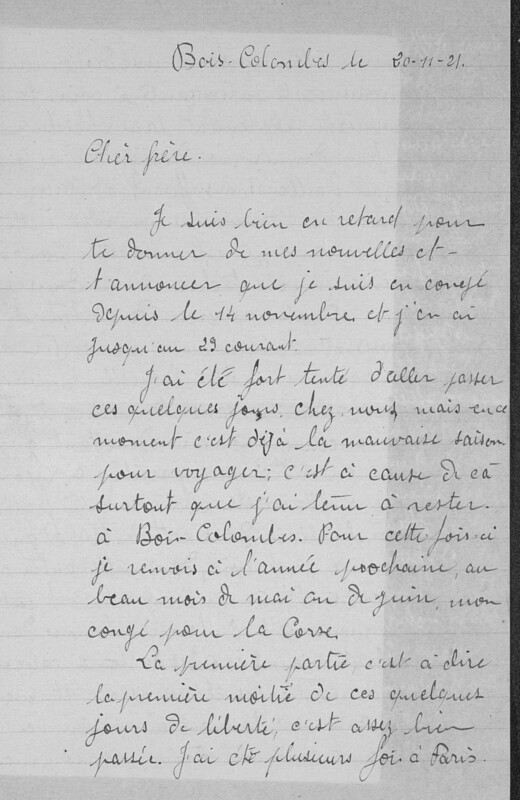 Bois-Colombes le 20-11-21.
Cher frère.
Je suis bien en retard pour
te donner de mes nouvelles et
t'annoncer que je suis en congé
depuis le 14 novembre, et j'en ai
jusqu'au 29 courant.
J'ai été fort tenté d'aller passer
ces quelques jours, chez nous, mais en ce
moment c'est déjà la mauvaise saison
pour voyager; c'est à cause de ça
surtout que j'ai tenu à rester
à Bois-Colombes. Pour cette fois-ci
je renvois à l'année poochaine, au
beau mois de mai ou de juin, mon
congé pour la Corse.
La première partie, c'est à dire
la première moitié de ces quelques
jours de liberté, c'est assez bien
passée. J'ai été plusieurs fois à Paris.